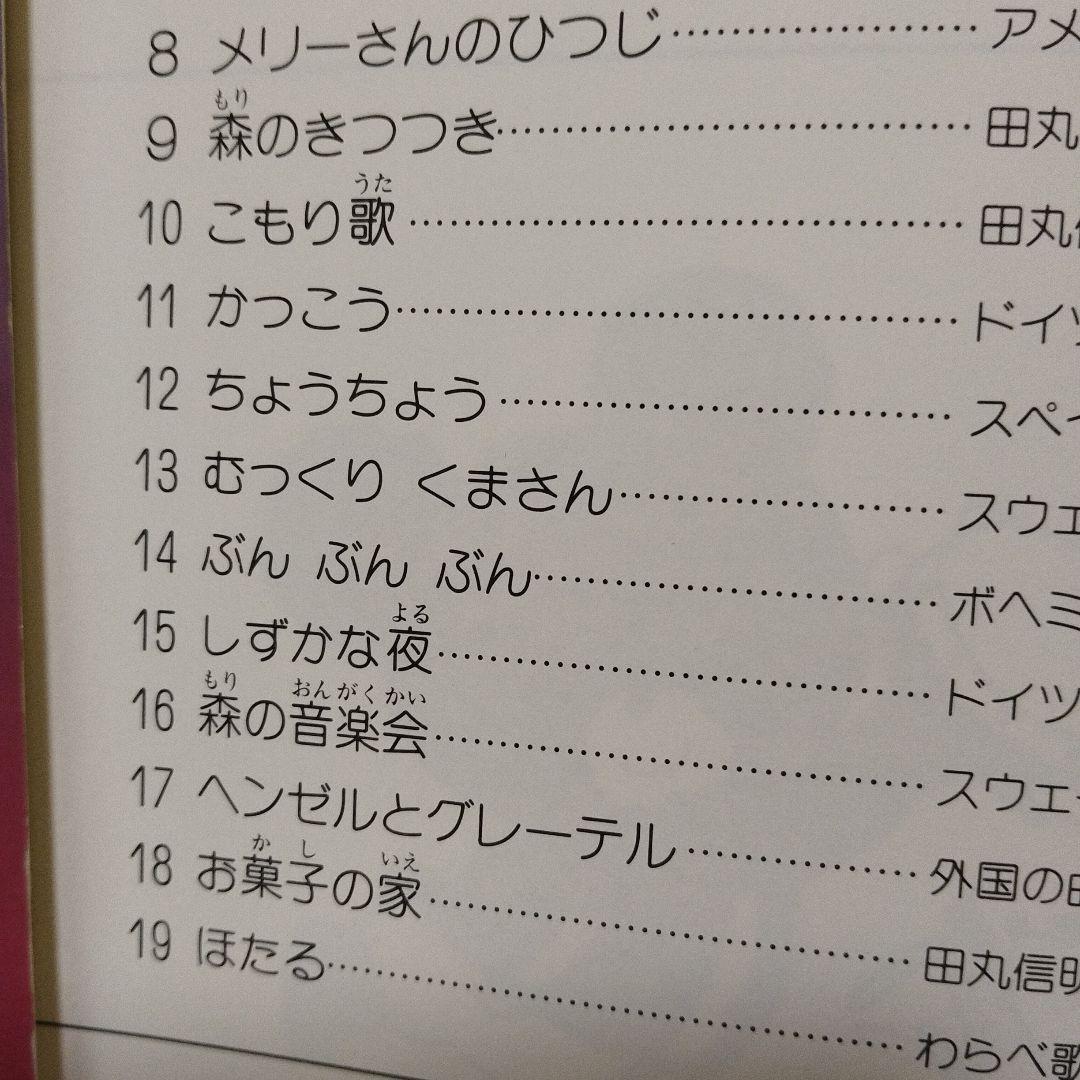 8 メリーさんのひつじ…………………アメ
もり
9 森のきつつき…………………田丸
うた
10 こもり歌…………………田丸
11 かっこう…………………ドイツ
12 ちょうちょう…………………スペイ
13 むっくり くまさん…………………スウェ
14 ぶん ぶん ぶん…………………ボヘミ
よる
15 しずかな夜…………………ドイツ
もり おんがくかい
16 森の音楽会…………………スウェ
17 ヘンゼルとグレーテル…………………外国の
かし いえ
18 お菓子の家…………………田丸信明
19 ほたる…………………わらべ歌